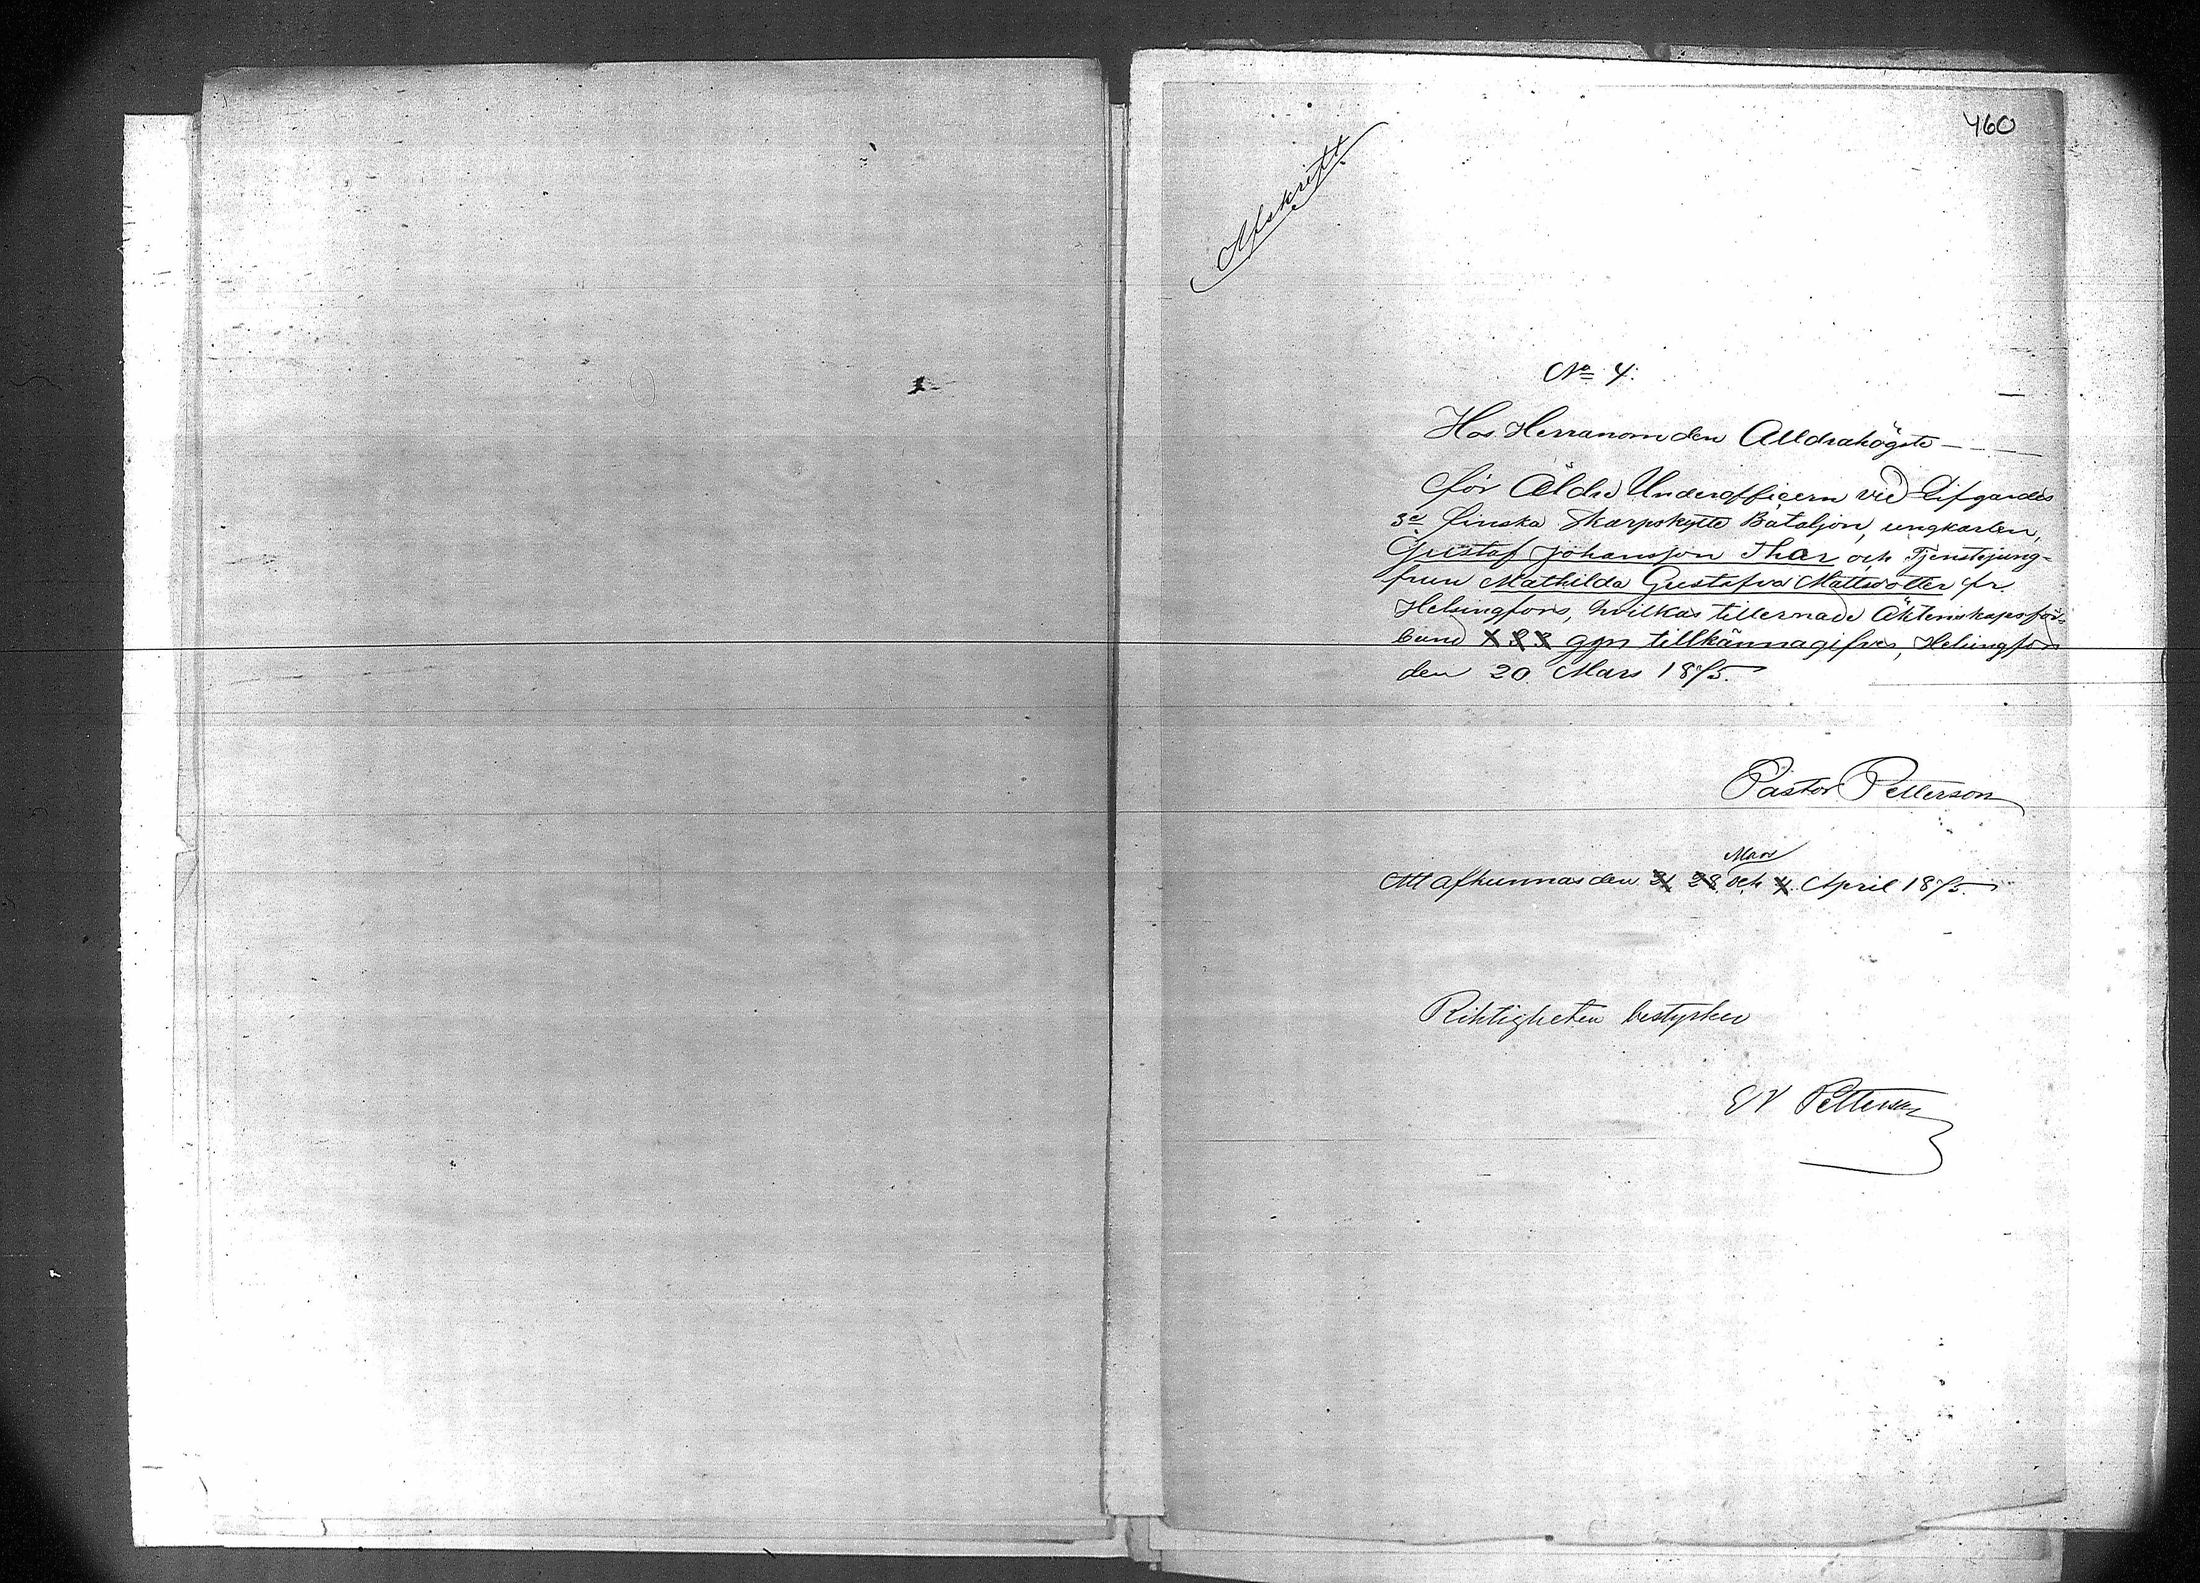 460
Afskrift
No 4.
Hos Herranom den Alldrahögste —
för Äldre Underofficern vid Lifgardes
3e Finska Skarpskytte Bataljon, ungkarlen,
Gustaf Johansson Thar och Tjenstejung-
frun Mathilda Gustafva Mattsdotter fr.
Helsingfors, hvilkas tillernade Äktenskapsför-
bund X X X ggn tillkännagifves, Helsingfors
den 20 Mars 1875.
Pastor Petterson
Mars
Att afkunnas den 21 28 och 4 April 1875.
Riktigheten bestyrker
Petterson